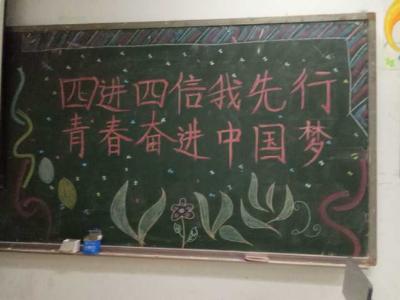 四进四信我先行
青春奋进中国梦